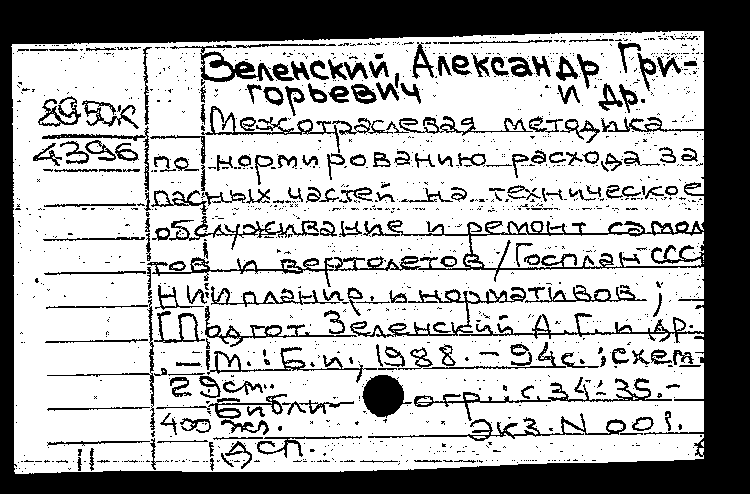 Зеленский, Александр Гри-
горьевич и др.
8950К
Межотраслевая методика
4396 по нормированию расхода за
пасных частей на техническое
обслуживание и ремонт самол
тов и вертолетов / Госплан ССС
НИИ планир. и нормативов ;
[Подгот. Зеленский А.Г. и др.
. – М. : Б. и., 1988. – 94 с. ; схем.
29 см..
Библи- огр. : с. 34-35. –
400 экз. Экз. N 001.
ДСП.
11